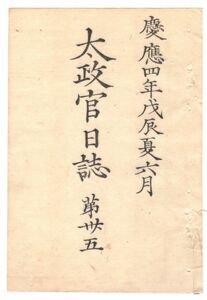 慶應四年戊辰夏六月
太政官日誌 第卅五